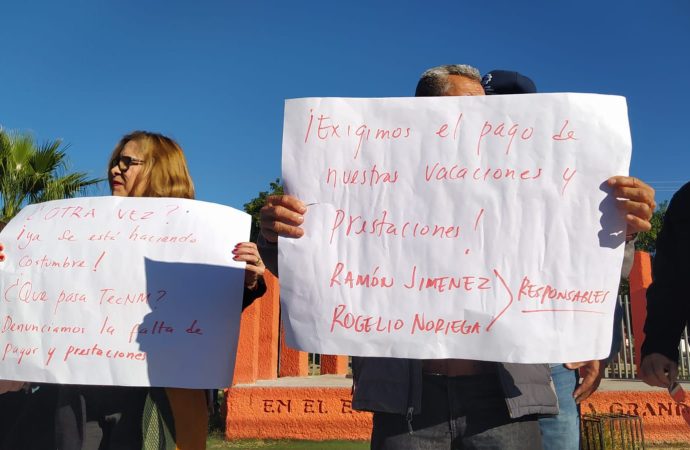 ¿OTRA VEZ?
¡ya se está haciendo
costumbre!
¿Que pasa TecNM?
Denunciamos la falta de
pagos y prestaciones
¡Exigimos el pago de
nuestras vacaciones y
prestaciones!
RAMÓN JIMENEZ
ROGELIO NORIEGA
RESPONSABLES
EN EL
GRAN